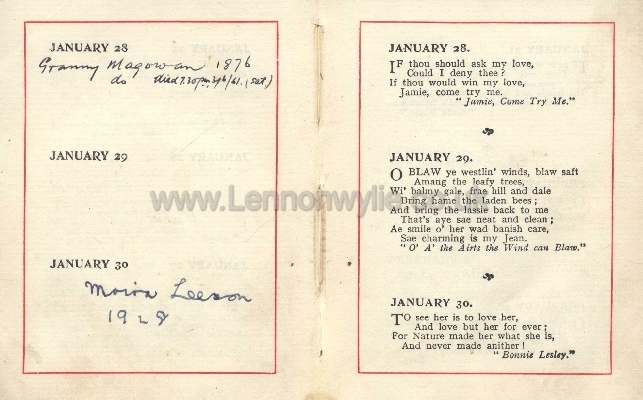 JANUARY 28
Granny Magowan 1876
do died 7.30pm /61. (Sat)
JANUARY 29
JANUARY 30
Moira Leeson
1928
JANUARY 28.
IF thou should ask my love,
Could I deny thee?
If thou would win my love,
Jamie, come try me.
"Jamie, Come Try Me."
JANUARY 29.
O BLAW ye westlin' winds, blaw saft
Amang the leafy trees,
Wi' balmy gale, frae hill and dale
Bring hame the laden bees;
And bring the lassie back to me
That's aye sae neat and clean;
Ae smile o' her wad banish care,
Sae charming is my Jean.
"O' A' the Airts the Wind can Blaw."
JANUARY 30.
TO see her is to love her,
And love but her for ever;
For Nature made her what she is,
And never made anither!
"Bonnie Lesley."
www.Lennonwylie.co.uk